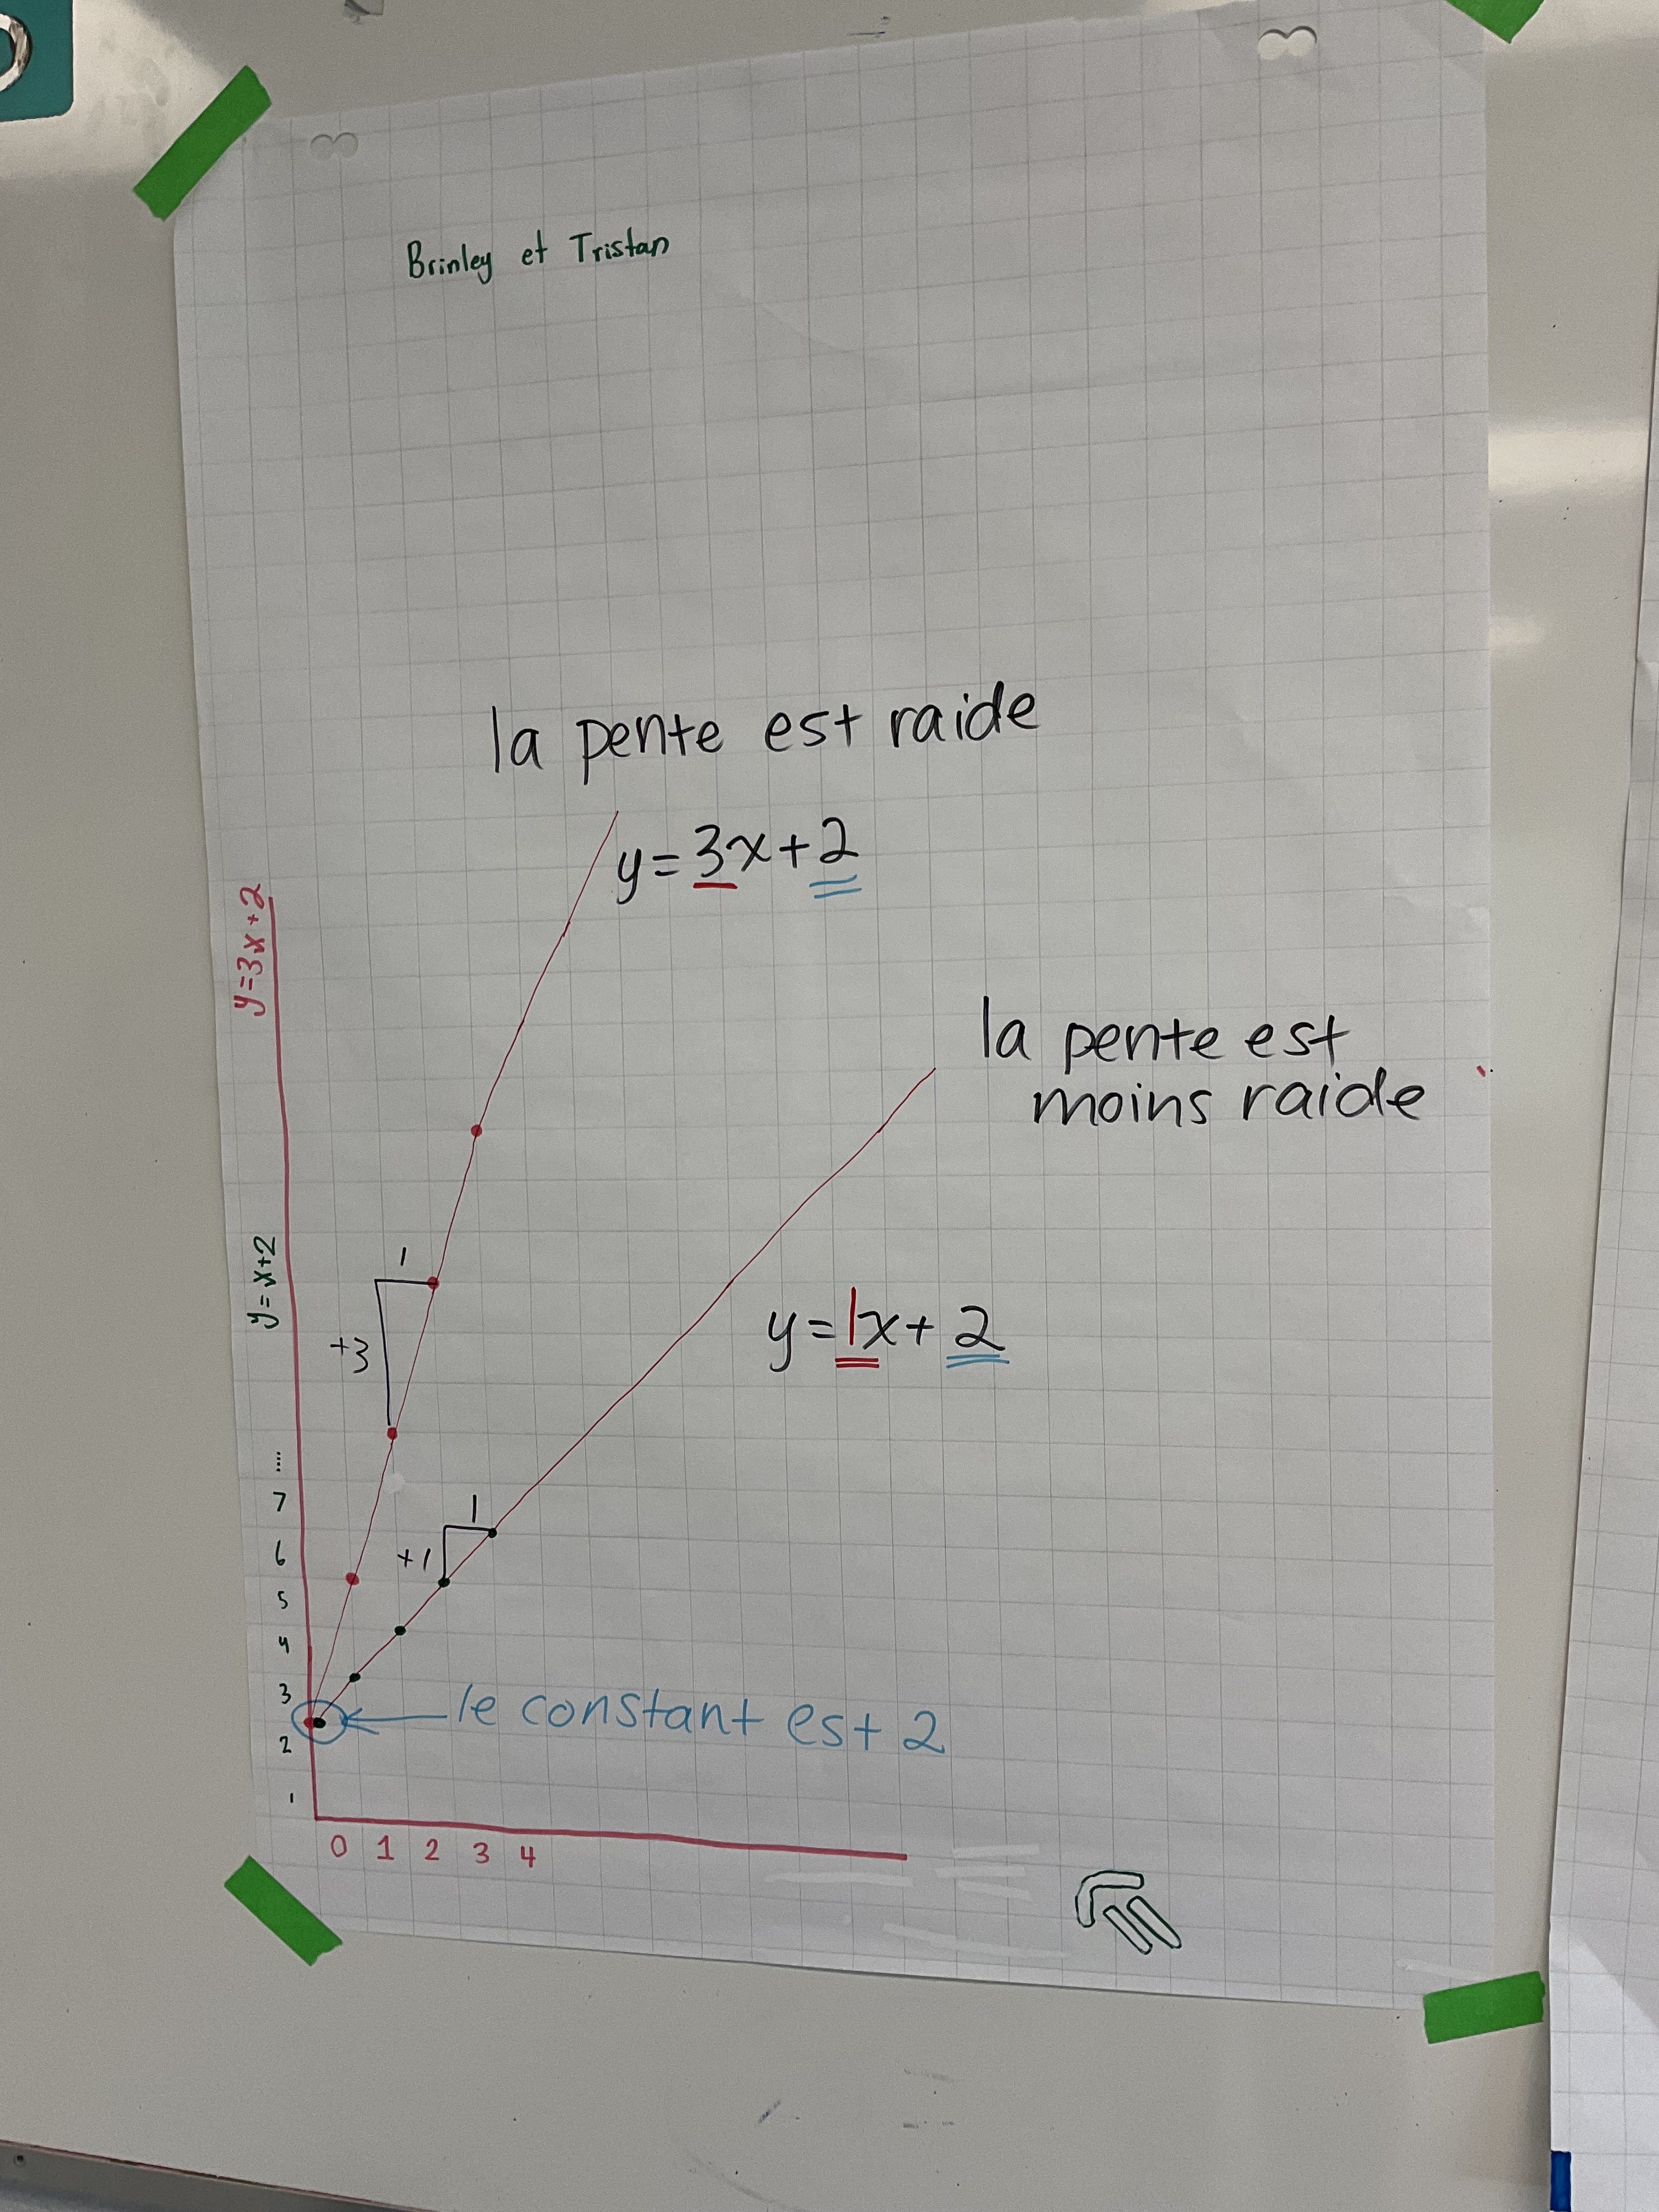 Brinley et Tristan
la pente est raide
y=3x+2
y=3x+2
la pente est
moins raide
y=x+2
1
+3
y=1x+2
....
7
1
6
+1
5
4
3
le constant est 2
2
1
0 1 2 3 4